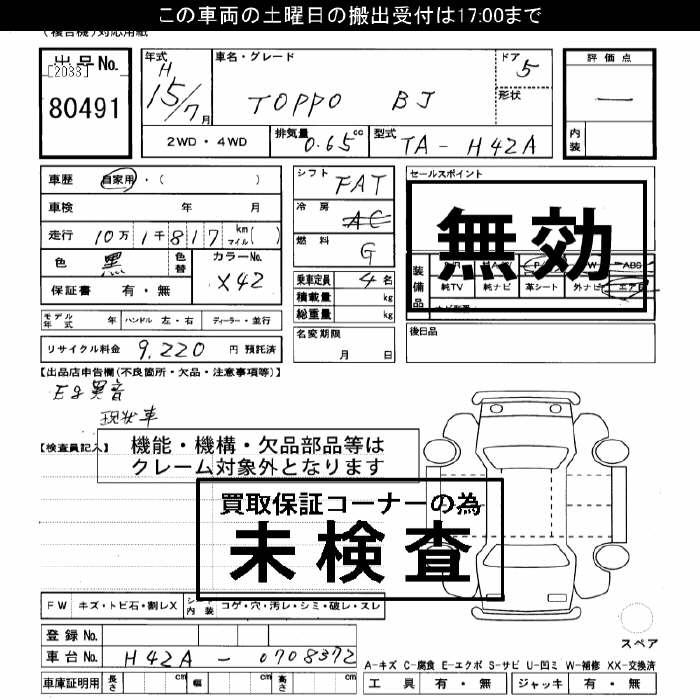 この車両の土曜日の搬出受付は17:00まで
(複合機)対応用紙
出品No.
[2033]
80491
年式
H
15/7
月
車名・グレード
TOPPO BJ
ドア
5
形状
評価点
—
内装
2WD・4WD
排気量
0.65
cc
型式
TA- H42A
車歴
自家用・( )
車検
年 月
走行
10万1千817
km
マイル( )
色
黒
色替
カラーNo.
X42
保証書 有・無
シフト
FAT
冷房
AC
燃料
G
乗車定員
4名
積載量
kg
総重量
kg
セールスポイント
無効
装備品
ABS
純TV
純ナビ
革シート
外ナビ
エアB
モデル年式
年
ハンドル 左・右
ディーラー・並行
名変期限
月 日
後日品
リサイクル料金 9,220 円 預託済
【出品店申告欄(不良箇所・欠品・注意事項等)】
Eg異音
現状車
【検査員記入】
機能・機構・欠品部品等は
クレーム対象外となります
買取保証コーナーの為
未検査
FW
キズ・トビ石・割レX
シート内装
コゲ・穴・汚レ・シミ・破レ・スレ
登録No.
車台No.
H42A - 0708372
車庫証明用
長さ
cm
幅
cm
高さ
cm
スペア
A-キズ C-腐食 E-エクボ S-サビ U-凹ミ W-補修 XX-交換済
工具 有・無
ジャッキ 有・無